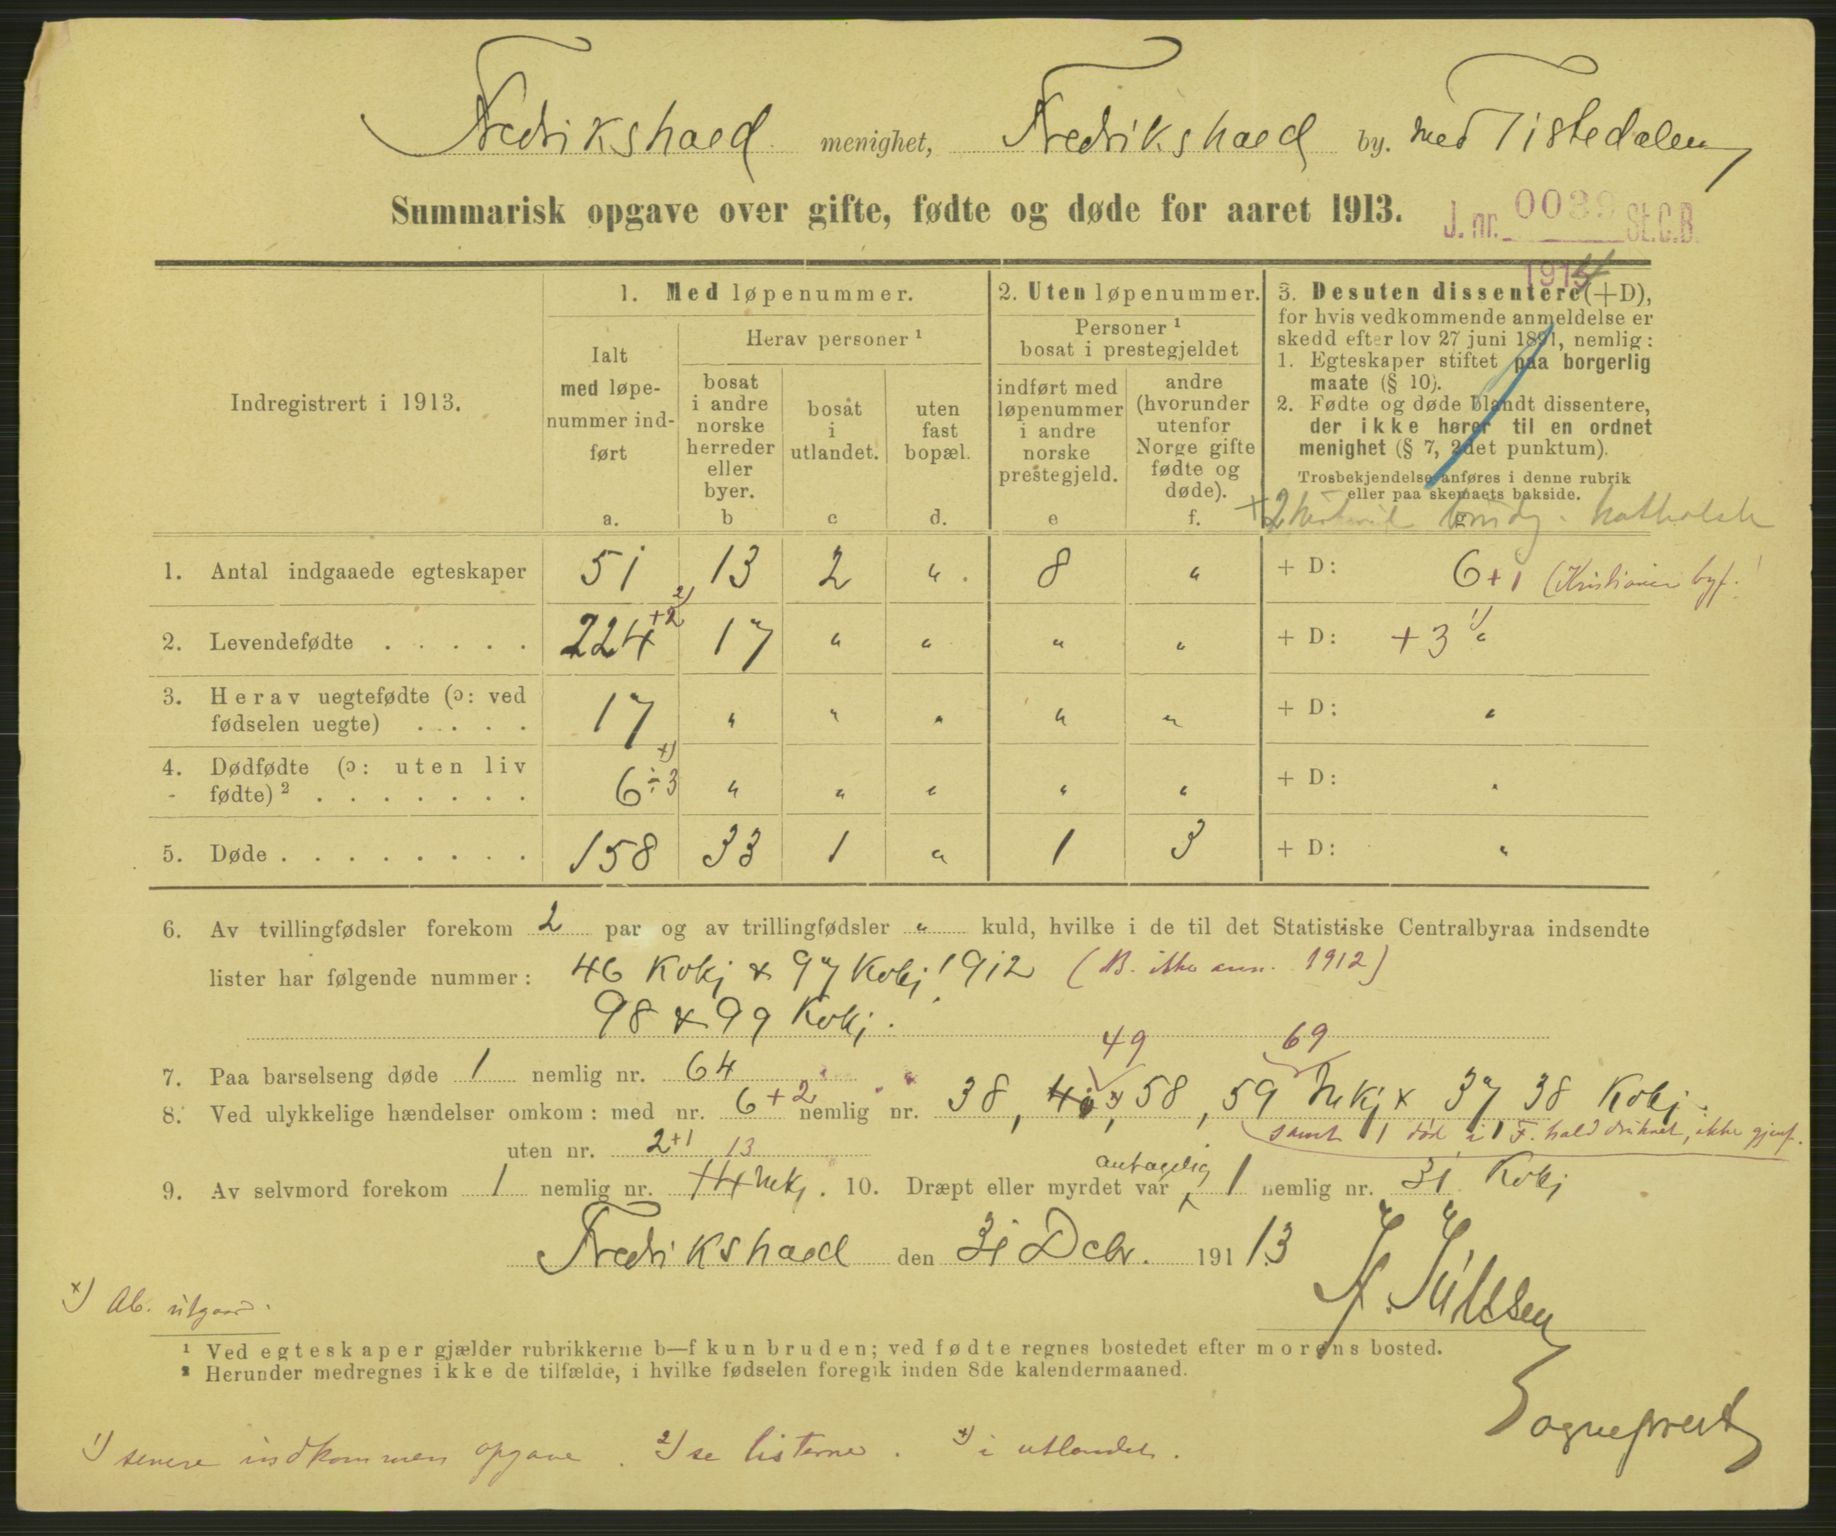 Fredrikshald menighet, Fredrikshald by. med Tistedalen
Summarisk opgave over gifte, fødte og døde for aaret 1913.
J. nr. 0039 St.C.B.
1914
Indregistrert i 1913.
1. Med løpenummer.
Ialt med løpenummer indført
a.
Herav personer ¹
bosat i andre norske herreder eller byer.
b
bosat i utlandet.
c
uten fast bopæl.
d.
2. Uten løpenummer.
Personer ¹ bosat i prestegjeldet
indført med løpenummer i andre norske prestegjeld.
e
andre (hvorunder utenfor Norge gifte fødte og døde).
f.
3. Desuten dissentere (+D),
for hvis vedkommende anmeldelse er
skedd efter lov 27 juni 1891, nemlig:
1. Egteskaper stiftet paa borgerlig
maate (§ 10).
2. Fødte og døde blandt dissentere,
der ikke hører til en ordnet
menighet (§ 7, 2det punktum).
Trosbekjendelse anføres i denne rubrik
eller paa skemaets bakside.
+2 katholsk
1. Antal indgaaede egteskaper 51 13 2 " 8 " + D: 6 + 1 (Kristiania byf.!
2. Levendefødte 224 +2 ²) 17 " " " " + D: + 3 ¹) "
3. Herav uegtefødte (ɔ: ved
fødselen uegte) 17 " " " " " + D: "
4. Dødfødte (ɔ: uten liv
fødte) ² 6 ÷ 3 ˣ) " " " " " + D: "
5. Døde 158 33 1 " 1 3 + D: "
6. Av tvillingfødsler forekom 2 par og av trillingfødsler " kuld, hvilke i de til det Statistiske Centralbyraa indsendte
lister har følgende nummer: 46 Kvkj & 97 Kvkj 1912 (B. ikke 1912)
98 & 99 Kvkj.
49 69
7. Paa barselseng døde 1 nemlig nr. 64
8. Ved ulykkelige hændelser omkom: med nr. 6 + 2 nemlig nr. 38, 58, 59 Mkj & 37 38 Kvkj.
samt 1 død i F.hald
uten nr. 2 +1 13
9. Av selvmord forekom 1 nemlig nr. 14 Mkj. 10. Dræpt eller myrdet var antagelig 1 nemlig nr. 31 Kvkj
Fredrikshald den 31 Debr. 191 13
ˣ) Ab. utgaar.
¹ Ved egteskaper gjælder rubrikkerne b—f kun bruden; ved fødte regnes bostedet efter morens bosted.
² Herunder medregnes ikke de tilfælde, i hvilke fødselen foregik inden 8de kalendermaaned.
Sogneprest
¹) senere indkommen opgave. ²) se listerne. ˣ) i utlandet.